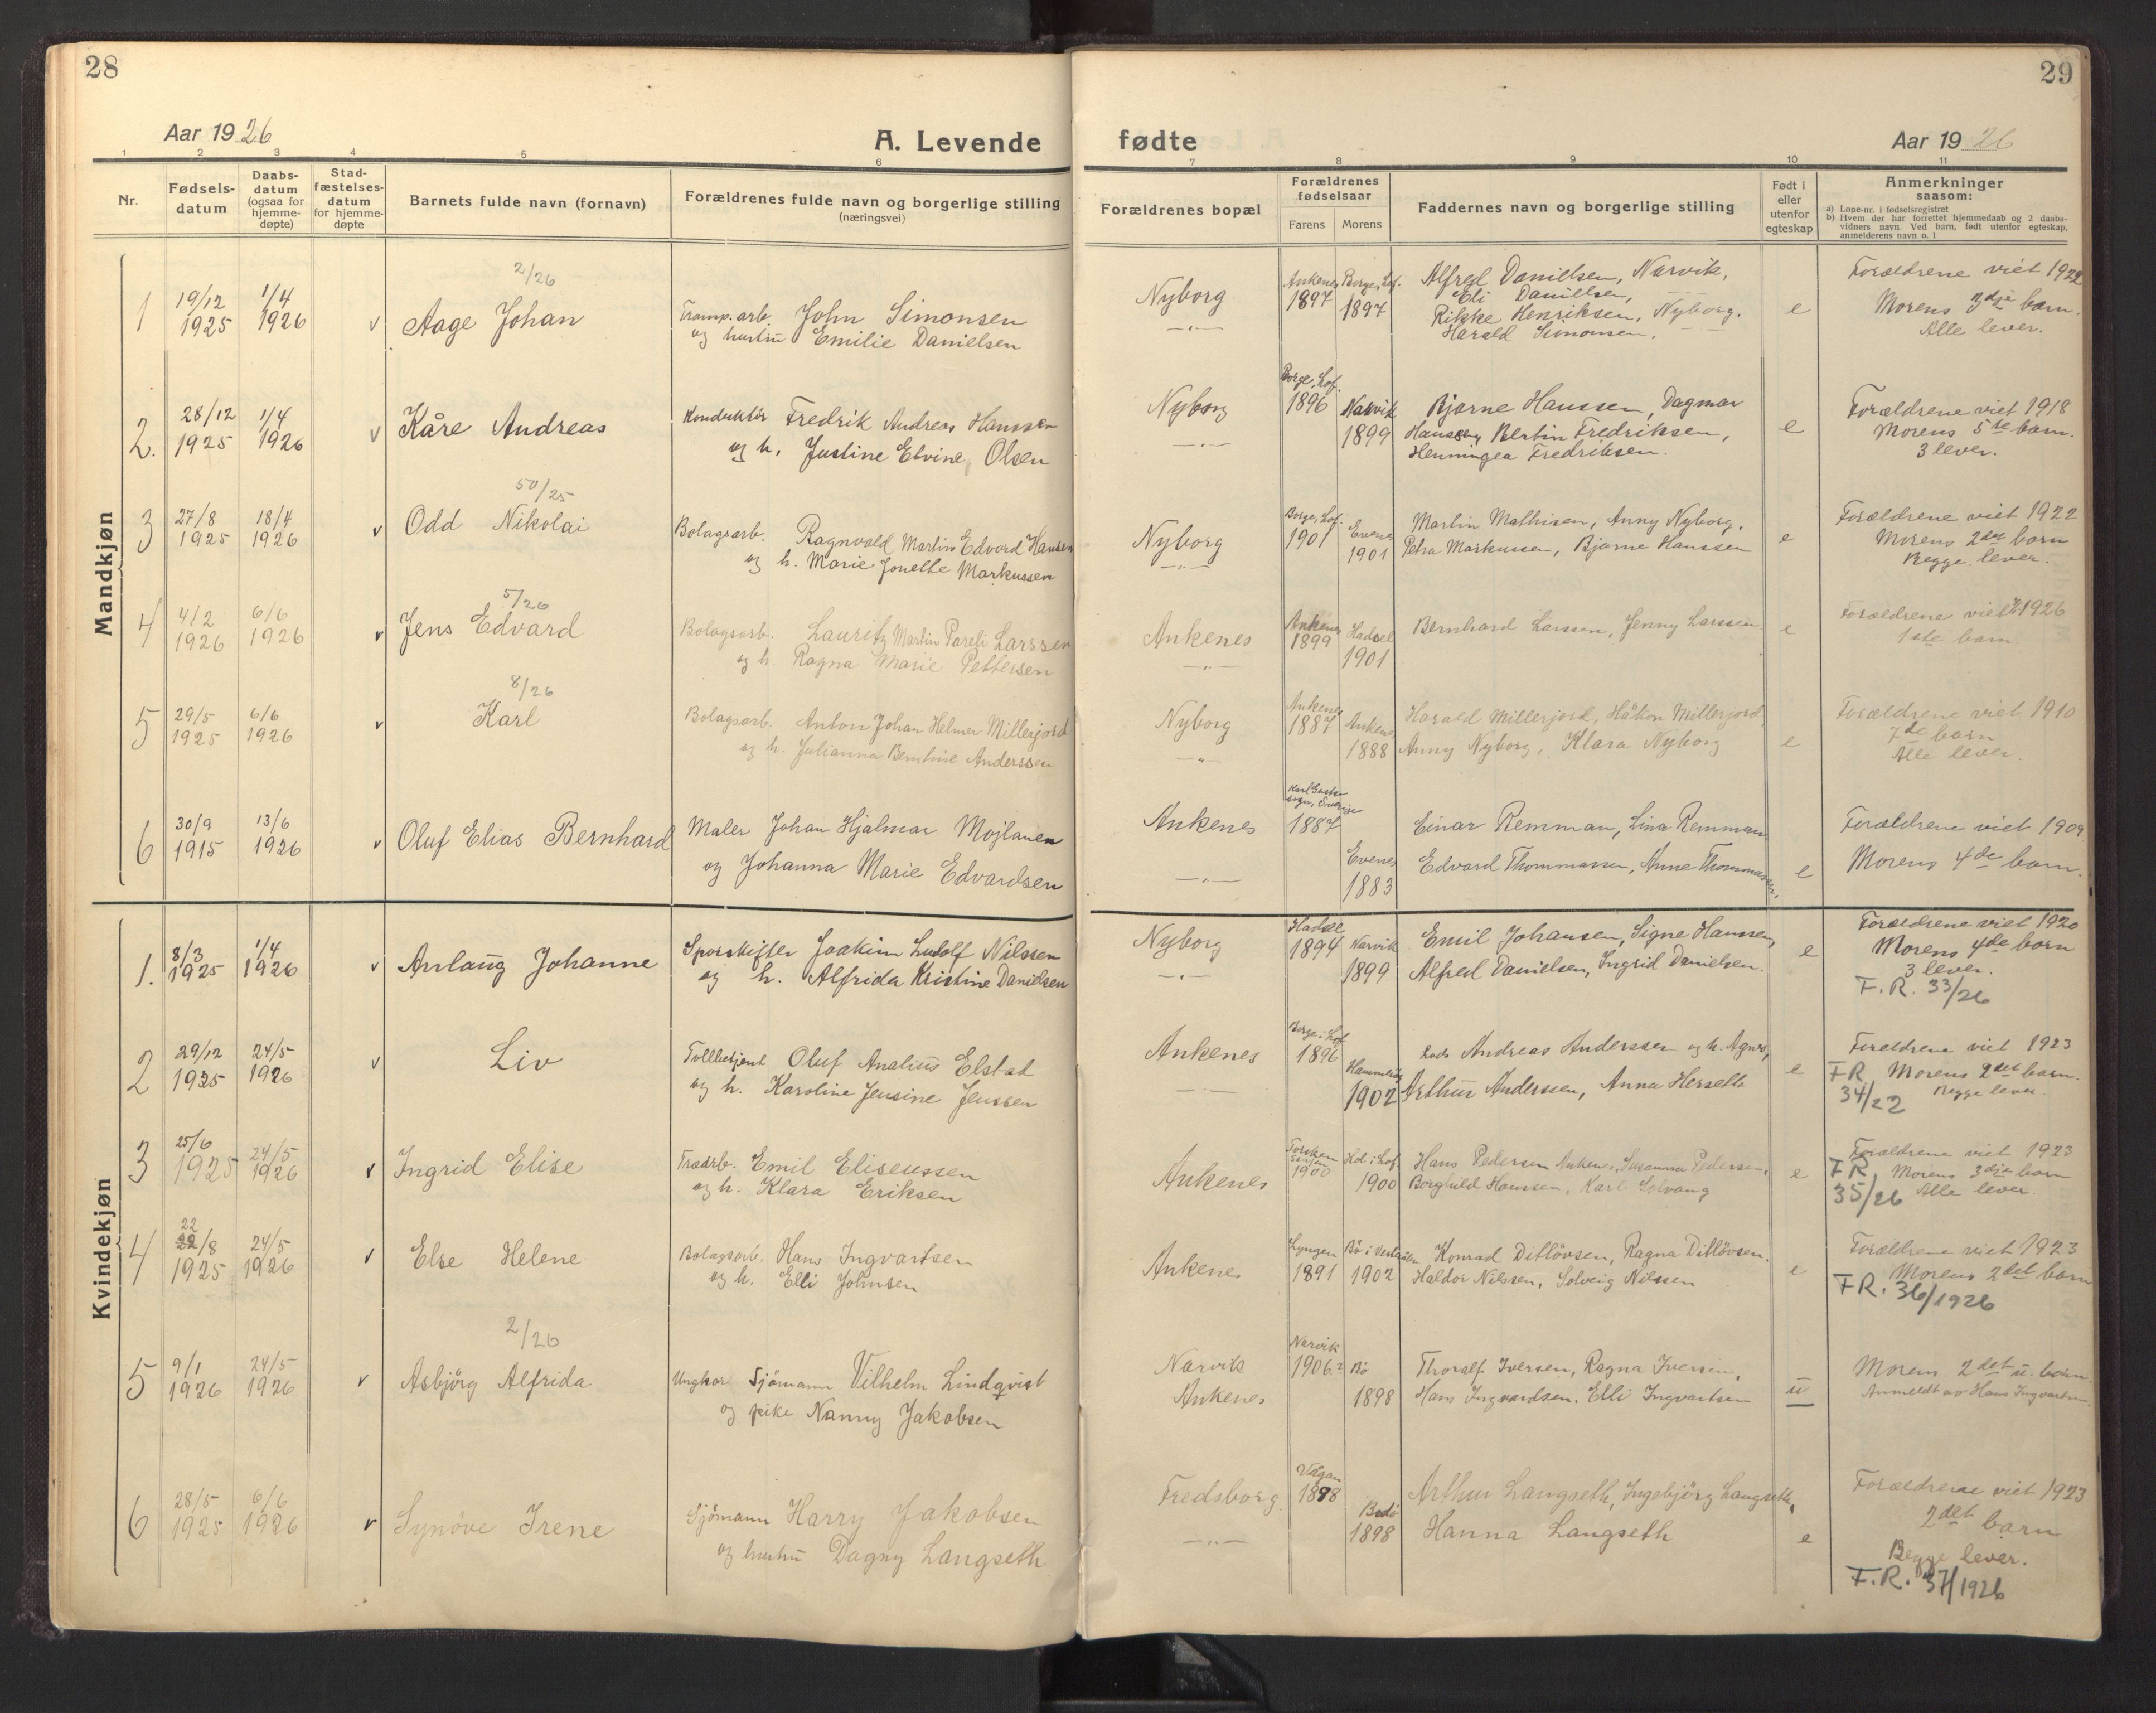 28
Aar 1926
A. Levende
1 2 3 4 5 6
Nr.
Fødsels-
datum
Daabs-
datum
(ogsaa for
hjemme-
døpte)
Stad-
fæstelses-
datum
for hjemme-
døpte
Barnets fulde navn (fornavn)
Forældrenes fulde navn og borgerlige stilling
(næringsvei)
29
fødte
Aar 1926
7 8 9 10 11
Forældrenes bopæl
Forældrenes
fødselsaar
Farens Morens
Faddernes navn og borgerlige stilling
Født i
eller
utenfor
egteskap
Anmerkninger
saasom:
a) Løpe-nr. i fødselsregistret
b) Hvem der har forrettet hjemmedaab og 2 daabs-
vidners navn. Ved barn, født utenfor egteskap,
anmelderens navn o. l
Mandkjøn
1 19/12 1925 1/4 1926 v
2/26
Aage Johan
arb. John Simonsen
og hustru Emilie Danielsen
Nyborg
—"—
Ankenes 1897
Borge, Lof. 1897
Alfred Danielsen, Narvik,
Eli Daniellsen,
Rikke Henriksen, Nyborg.
Harald Simonsen.
e
Forældrene viet 1922
Morens 3dje barn.
Alle lever.
2. 28/12 1925 1/4 1926 v
Kåre Andreas
Konduktör Fredrik Andreas Hanssen
og h. Justine Elvine Olsen
Nyborg
—"—
Borge, Lof. 1896
Narvik 1899
Bjarne Hanssen, Dagmar
Hanssen, Bertin Fredriksen,
Henningea Fredriksen.
e
Forældrene viet 1918
Morens 5te barn.
3 lever.
3 27/8 1925 18/4 1926 v
50/25
Odd Nikolai
Bolagsarb. Ragnvald Martin Edvard Hansen
og h. Marie Jonette Markussen
Nyborg
—"—
Borge, Lof. 1901
Evenes 1901
Martin Mathisen, Anny Nyborg,
Petra Markussen, Bjarne Hanssen
e
Forældrene viet 1922
Morens 2det barn
Begge lever.
4 4/2 1926 6/6 1926 v
5/26
Jens Edvard
Bolagsarb. Lauritz Martin Pareli Larssen
og h. Ragna Marie Pettersen
Ankenes
—"—
Ankenes 1899
Hadsel 1901
Bernhard Larssen, Jenny Larssen
e
Forældrene viet 1926
1ste barn
5 29/5 1925 6/6 1926 v
8/26
Karl
Bolagsarb. Anton Johan Helmer Millerjord
og h. Julianna Berntine Anderssen
Nyborg
—"—
Ankenes 1887
Ankenes 1888
Harald Millerjord, Håkon Millerjord,
Anny Nyborg, Klara Nyborg
e
Forældrene viet 1910
7de barn
Alle lever.
6 30/9 1915 13/6 1926 v
Oluf Elias Bernhard
Maler Johan Hjalmar Mojlanen
og Johanna Marie Edvardsen
Ankenes
—"—
Karl Gustav sogn, Sverige 1887
Evenes 1883
Einar Remman, Lina Remman
Edvard Thommassen, Anne Thommassen,
e
Forældrene viet 1909
Morens 4de barn.
Kvindekjøn
1. 8/3 1925 1/4 1926 v
Anlaug Johanne
Sporskifter Joakim Ludolf Nilssen
og h. Alfrida Kristine Danielsen
Nyborg
—"—
Hadsel 1894
Narvik 1899
Emil Johansen, Signe Hanssen,
Alfred Danielsen, Ingrid Danielsen.
e
Forældrene viet 1920
Morens 4de barn
3 lever.
F.R. 33/26
2 29/12 1925 24/5 1926 v
Liv
Tollbetjent Oluf Analius Elstad
og h. Karoline Jensine Jenssen
Ankenes
— —
Borge i Lof 1896
1902
Lods Andreas Anderssen og h. Agnes,
Arthur Anderssen, Anna Herseth
e
Forældrene viet 1923
FR Morens 2det barn.
34/22 Begge lever.
3 25/6 1925 24/5 1926 v
Ingrid Elise
Emil Eliseussen
og h. Klara Eriksen
Ankenes
1900
Hol i Lof 1900
Hans Pedersen Ankenes, Susanna Pedersen,
Borghild Hanssen, Karl Solvang
e
Forældrene viet 1923
FR, Morens 3dje barn
35/26 Alle lever.
4 22
22/8 1925 24/5 1926 v
Else Helene
Bolagsarb. Hans Ingvartsen
og h. Elli Johnsen
Ankenes
Lyngen 1891
Bö i Vesterålen 1902
Konrad Ditlövsen, Ragna Ditlövsen.
Haldor Nilssen, Solveig Nilssen
e
Forældrene viet 1923
Morens 2det barn
FR. 36/1926
5 9/1 1926 24/5 1926 v
2/26
Asbjörg Alfrida
Ungkar Sjömann Vilhelm Lindqvist
og pike Nanny Jakobsen
Narvik
Ankenes
Narvik 1906?
Bö 1898
Thoralf Iversen, Ragna Iversen,
Hans Ingvardsen. Elli Ingvartsen
u
Morens 2det u. barn.
Anmeldt av Hans Ingvartsen
6 28/5 1925 6/6 1926 v
Synöve Irene
Sjömann Harry Jakobsen
og hustru Dagny Langseth
Fredsborg
—"—
Vågan 1898
Bodö 1898
Arthur Langseth, Ingebjörg Langseth,
Hanna Langseth
e
Forældrene viet 1923
2det barn
Begge lever.
F.R. 37/1926